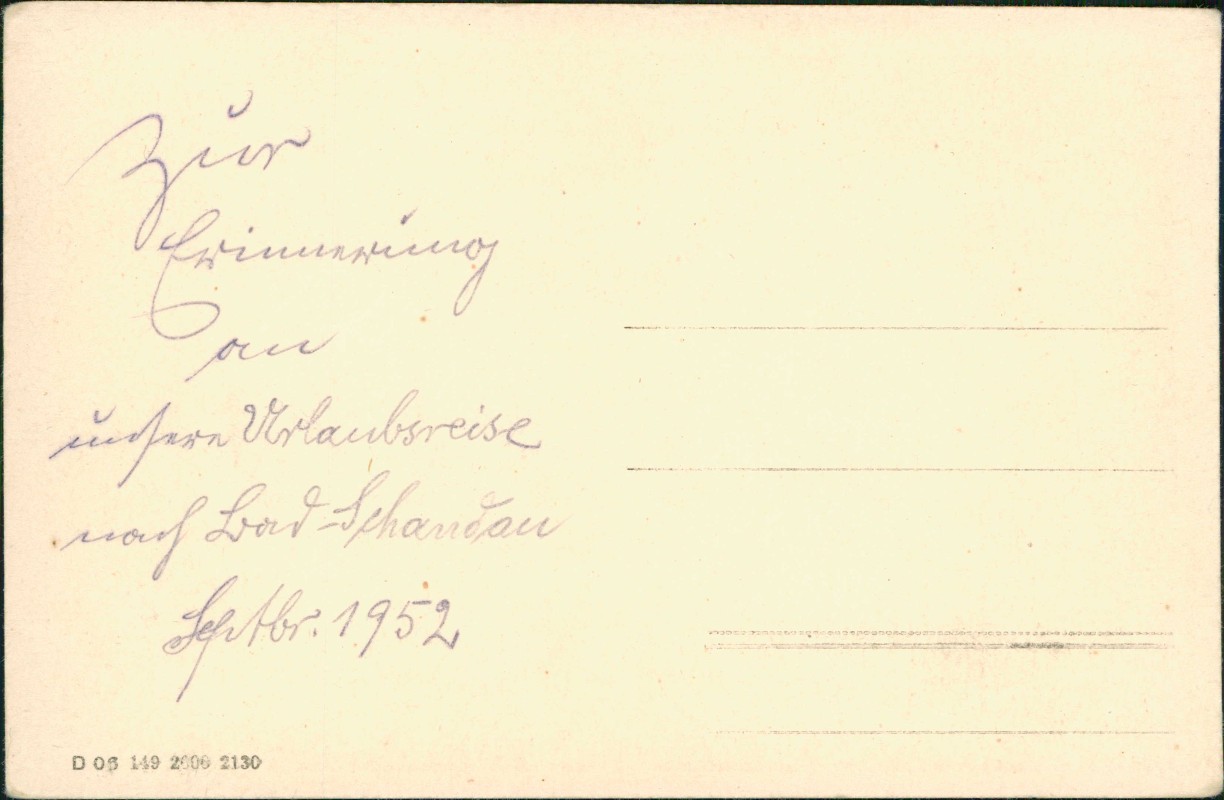 Zur
Erinnerung
an
unsere Urlaubsreise
nach Bad-Schandau
Septbr. 1952
D 06 149 2000 2130